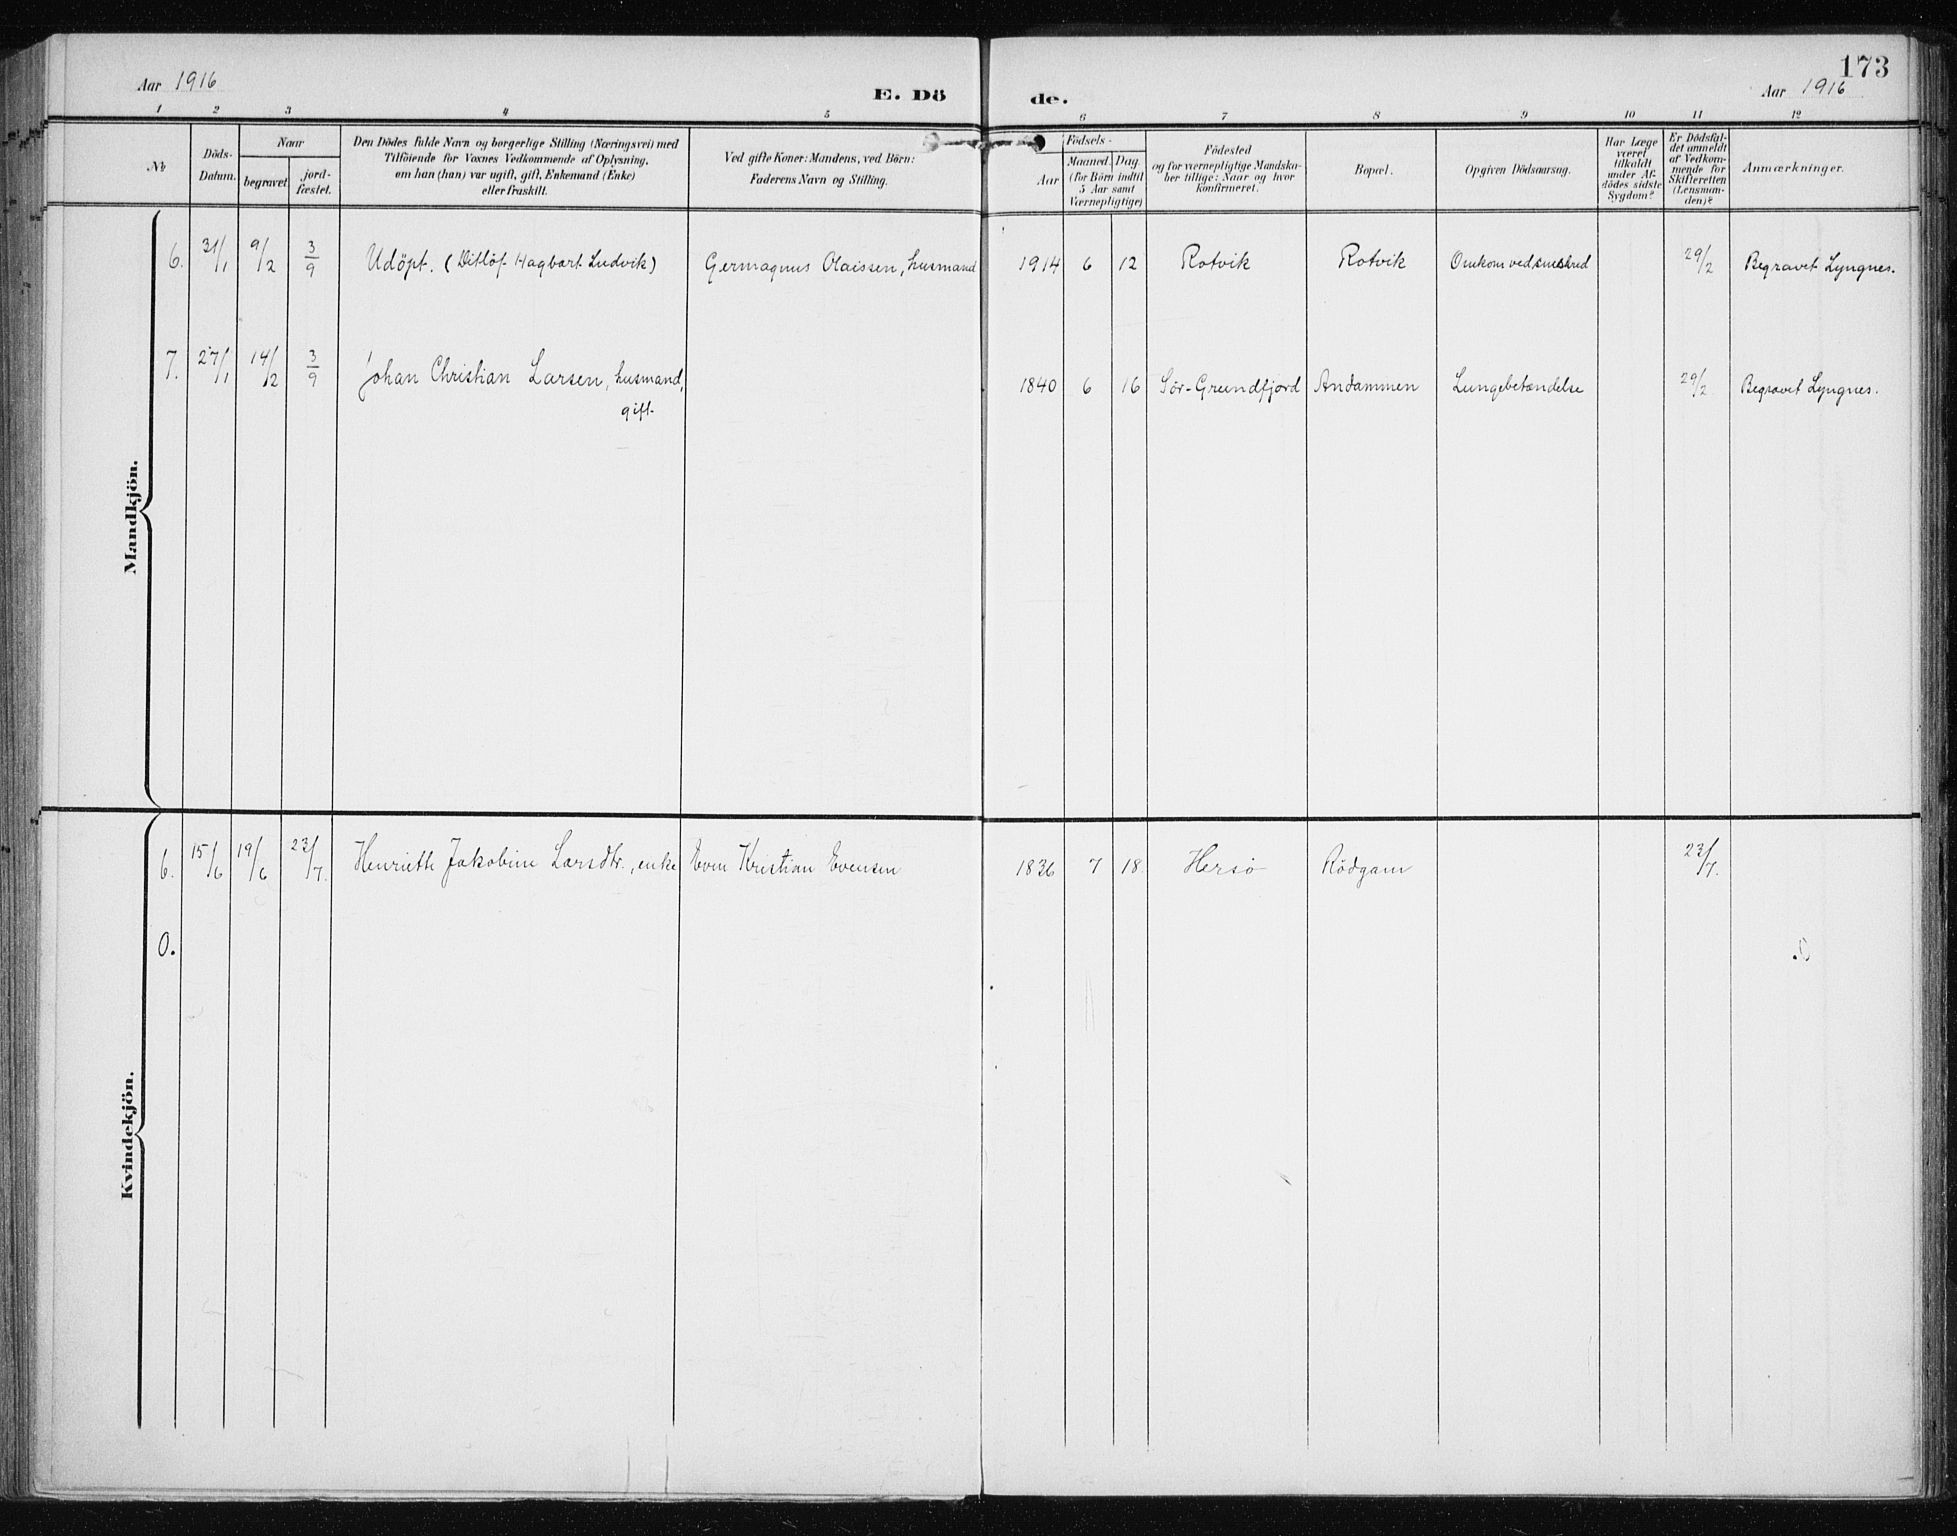 173
Aar 1916
E. Dö
de.
Aar 1916
1 2 3 4 5 6 7 8 9 10 11 12
No.
Döds-
Datum.
Naar
begravet.
jord-
fæstet.
Den Dödes fulde Navn og borgerlige Stilling (Næringsvei) med
Tilföiende for Voxnes Vedkommende af Oplysning,
om han (hun) var ugift, gift, Enkemand (Enke)
eller fraskilt.
Ved gifte Koner: Mandens, ved Börn:
Faderens Navn og Stilling.
Födsels-
Aar
Maaned.
Dag
(for Börn indtil
5 Aar samt
Værnepligtige)
Födested
og for værnepligtige Mandska-
ber tillige: Naar og hvor
konfirmeret.
Bopæl.
Opgiven Dödsaarsag.
Har Læge
været
tilkaldt
under Af-
dödes sidste
Sygdom?
Er Dödsfal-
det anmeldt
af Vedkom-
mende for
Skifteretten
(Lensman-
den)?
Anmærkninger.
Mandkjön.
6. 31/1 9/2 3/9 Udöpt. (Ditlöf Hagbart Ludvik) Germagnus Olaissen, husmand 1914 6 12 Rotvik Rotvik Omkom ved sneskred 29/2 Begravet Lyngnes.
7. 27/1 14/2 3/9 Johan Christian Larsen, husmand, 1840 6 16 Sør-Grundfjord Andammen Lungebetændelse 29/2 Begravet Lyngnes.
gift.
Kvindekjön.
6. 15/6 19/6 23/7. Henriette Jakobine Larsdtr., enke Even Kristian Evensen 1836 7 18. Hersö Rödgam 23/7.
0.